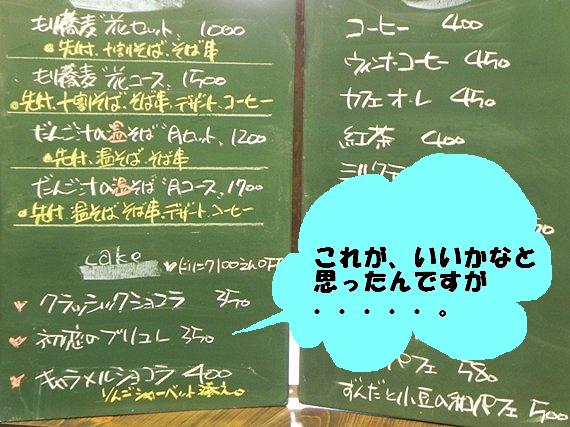 もり蕎麦"花セット、1000
●先付、十割そば、そば串
もり蕎麦"花コース、1500
●先付、十割そば、そば串、デザート、コーヒー
だんご汁の温そば"月セット、1200
●先付、温そば、そば串
だんご汁の温そば"月コース、1700
●先付、温そば、そば串、デザート、コーヒー
cake
ドリンク100えんOFF
クラッシックショコラ 350
初恋のブリュレ 350
キャラメルショコラ 400
りんごシャーベット添え。
コーヒー 400
ウィンナーコーヒー 450
カフェオーレ 450
紅茶 400
ミルクテ
50
これが、いいかなと
思ったんですが
・・・・・。
パフェ 580
ずんだと小豆の和パフェ 500